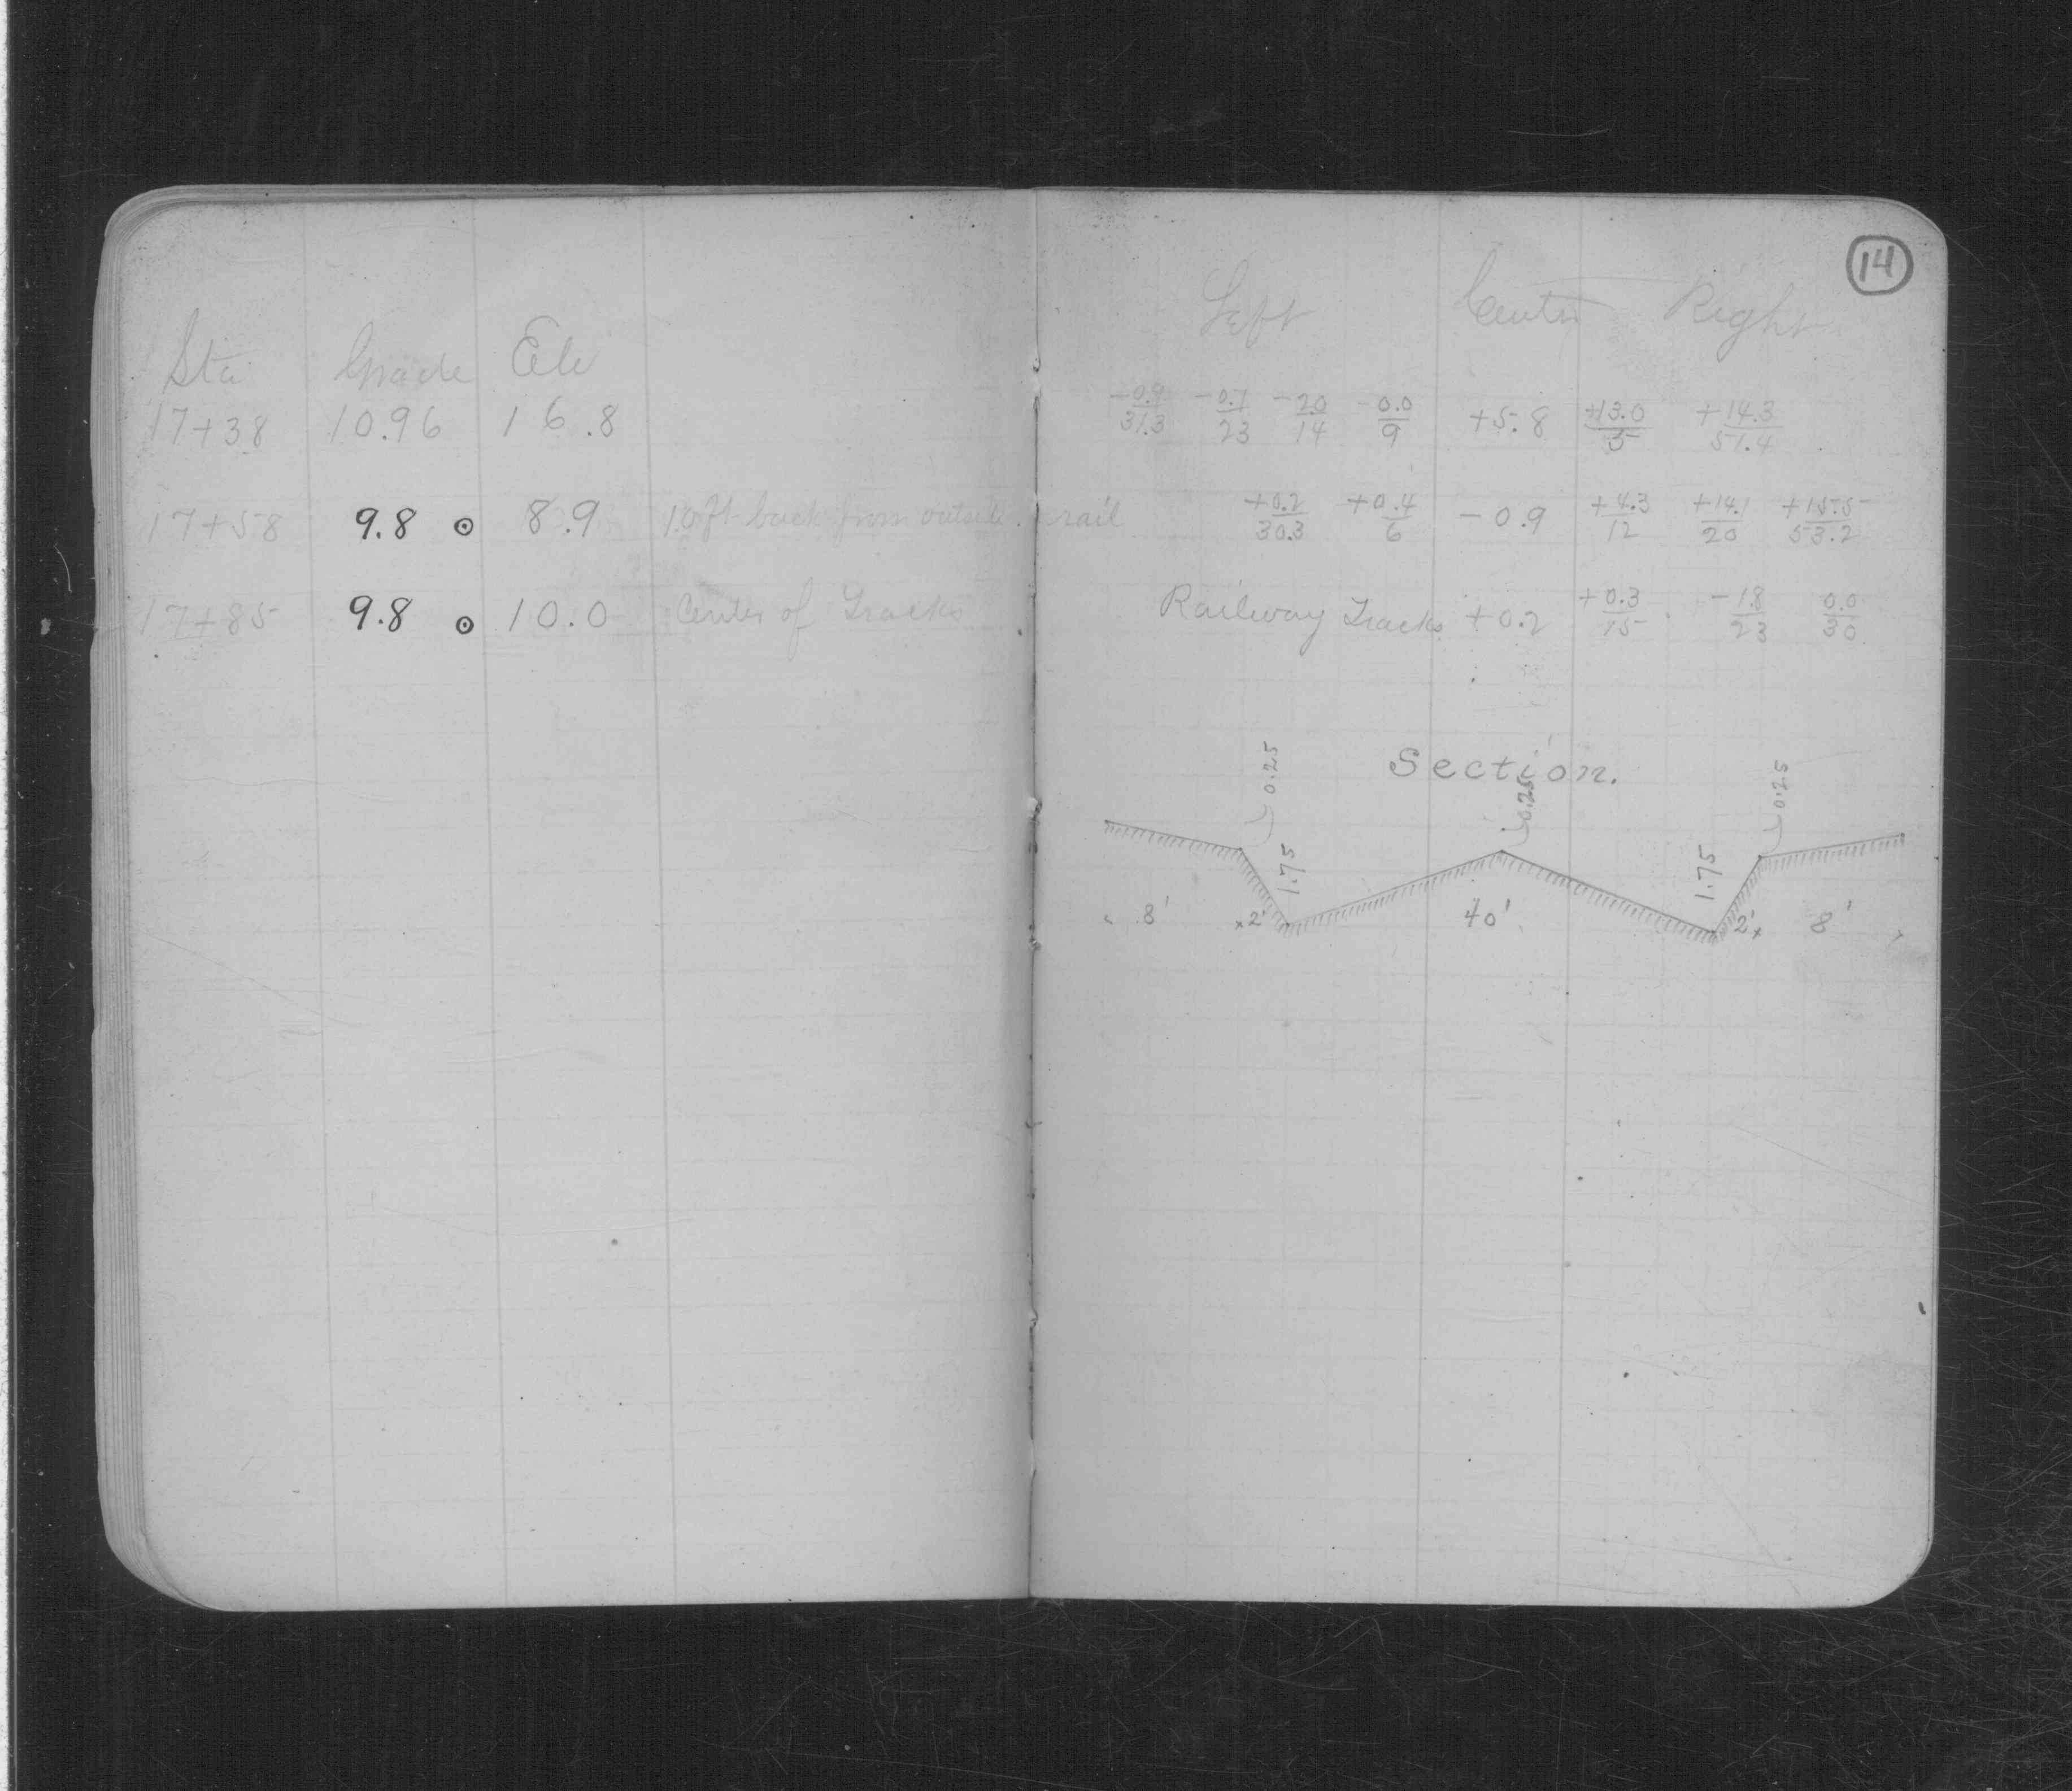 14
Left Center Right
Sta Grade Ele
17+38 10.96 16.8 -0.9/31.3 -0.7/23 -2.0/14 -0.0/9 +5.8 +13.0/5 +14.3/51.4
17+58 9.8 ⊙ 8.9 10 ft back from outside rail +0.2/30.3 +0.4/6 -0.9 +4.3/12 +14.1/20 +15.5/53.2
17+85 9.8 ⊙ 10.0 Center of Tracks Railway Tracks +0.2 +0.3/15 -1.8/23 0.0/30
Section.
0.25 0.25 0.25
1.75 1.75
8' 2' 40' 2' 8'